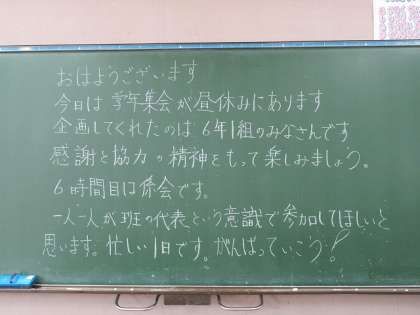 おはようございます
今日は学年集会が昼休みにあります
企画してくれたのは6年1組のみなさんです
感謝と協力の精神をもって楽しみましょう。
6時間目は係会です。
一人一人が班の代表という意識で参加してほしいと
思います。忙しい1日です。がんばっていこう!